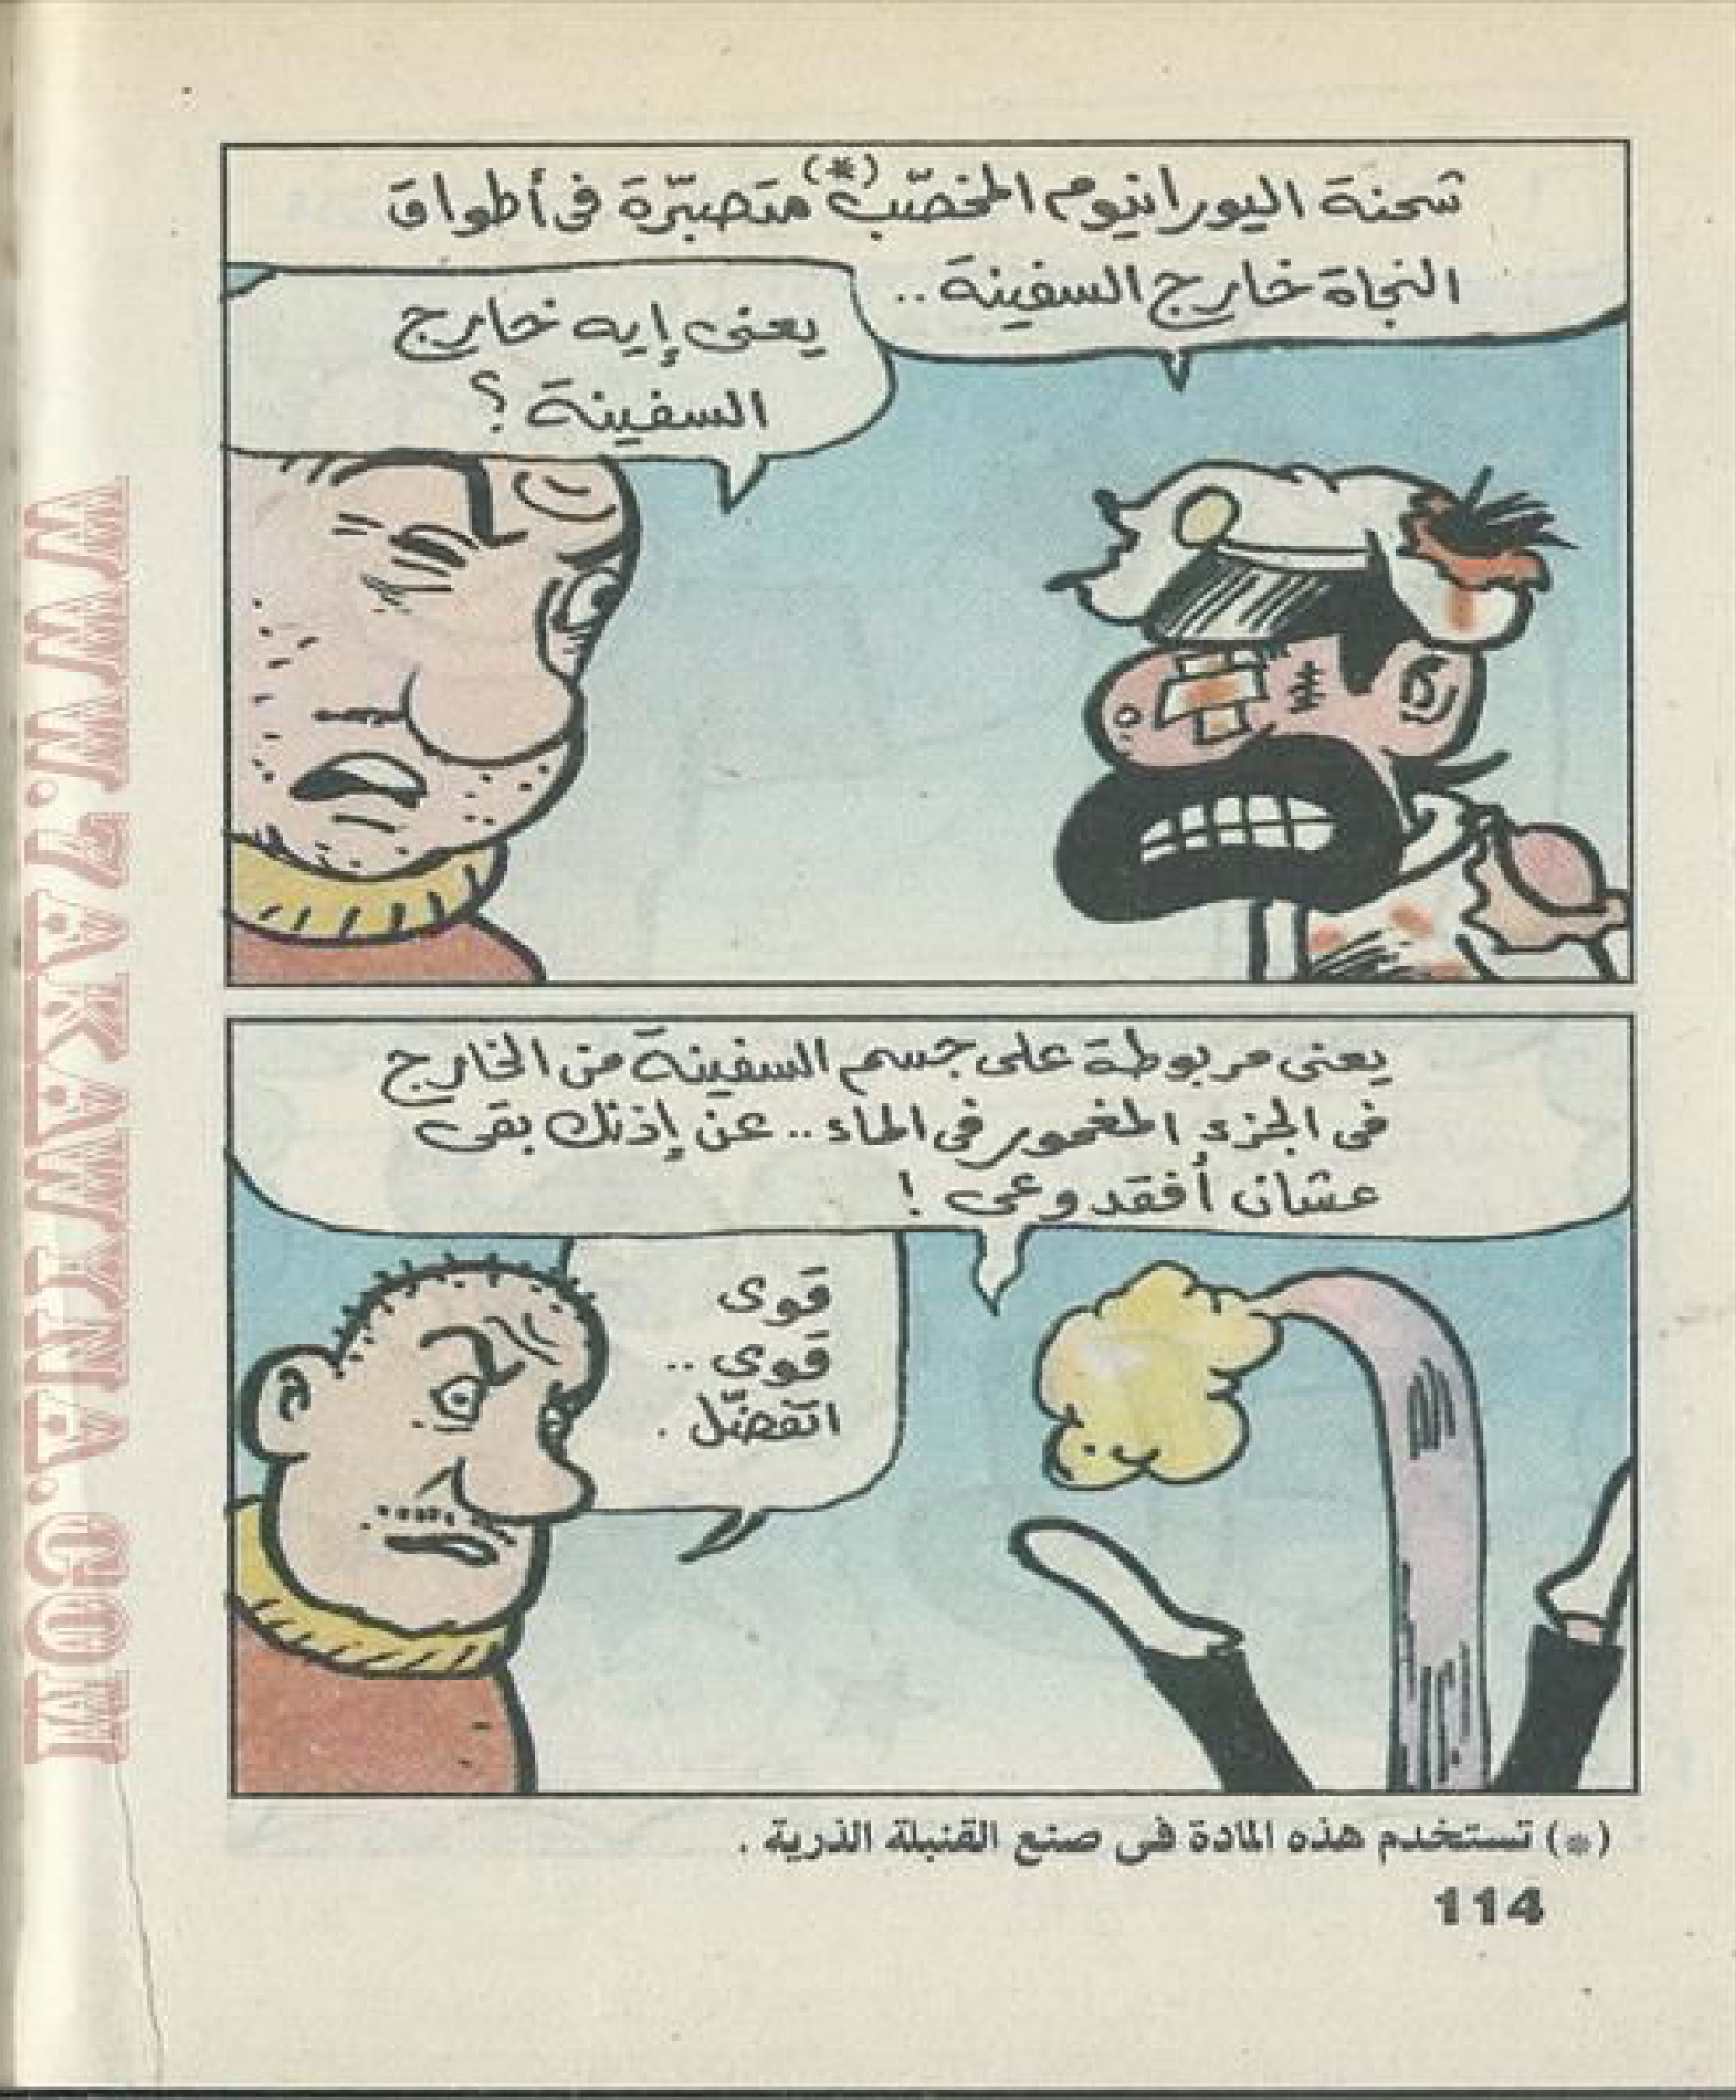 شحنة اليورانيوم المخصّب(*) متصبّرة فى أطواق
النجاة خارج السفينة..
يعنى إيه خارج
السفينة؟
يعنى مربوطة على جسم السفينة من الخارج
فى الجزء المغمور فى الماء.. عن إذنك بقى
عشان أفقد وعى !
قوى
قوى..
اتفضّل.
(*) تستخدم هذه المادة فى صنع القنبلة الذرية .
114
WWW.7AKAWINA.COM